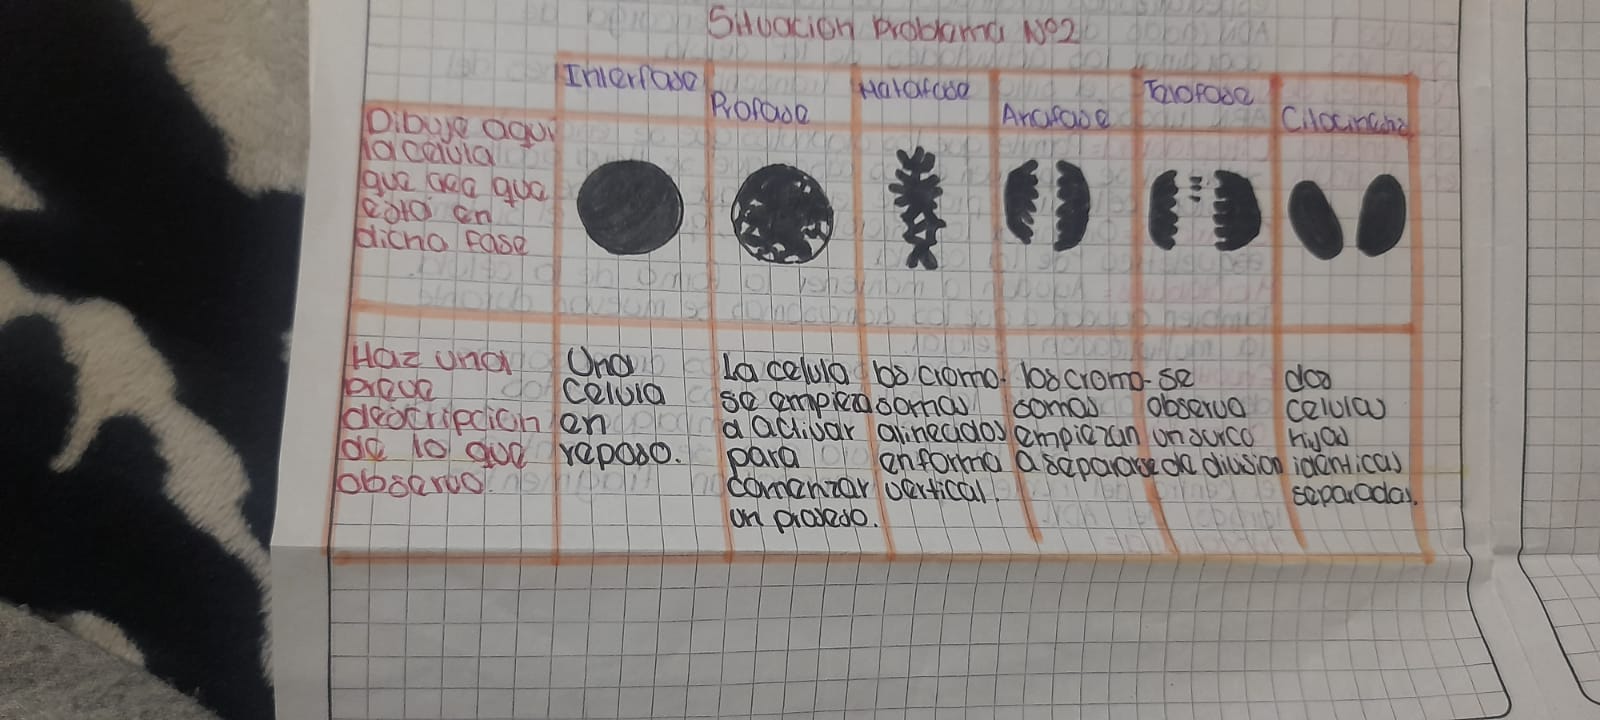 Situacion Problema Nº2
Interfase
Profase
Metafase
Anafase
Telofase
Citocinesis
Dibuje aqui
la celula
que cea que
esta en
dicha fase
Haz una
breve
descripcion
de lo que
observo.
Una
celula
en
reposo.
La celula
se empieza
a activar
para
comenzar
un proceso.
los cromo-
somas
alineados
en forma
vertical.
los cromo-
somas
empiezan
a separarse
se
observa
un surco
de division
dos
celulas
hijas
identicas
separadas.